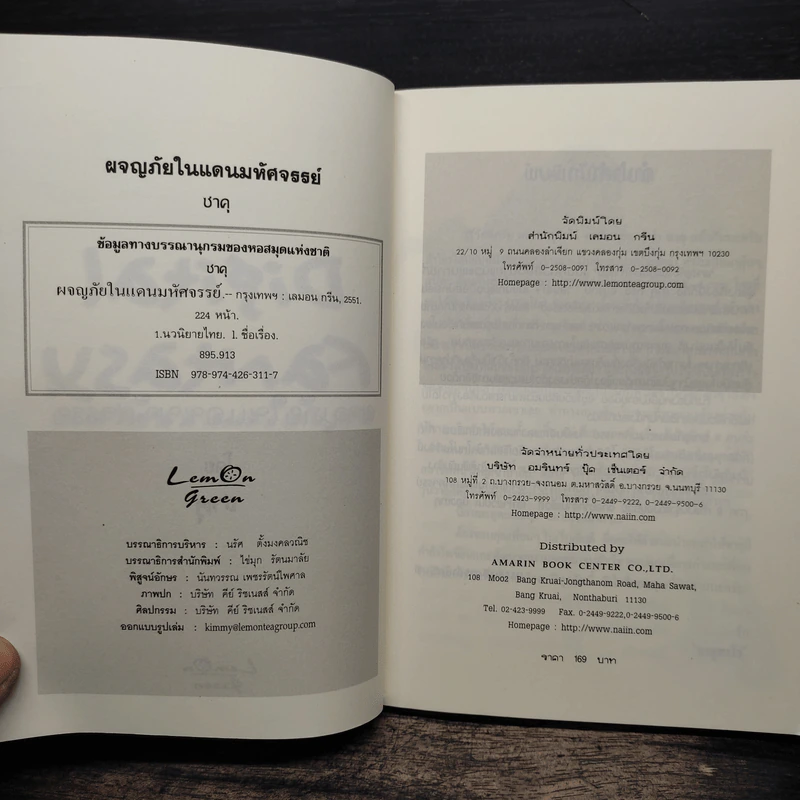 ผจญภัยในแดนมหัศจรรย์
ชาคุ
ข้อมูลทางบรรณานุกรมของหอสมุดแห่งชาติ
ชาคุ
ผจญภัยในแดนมหัศจรรย์.-- กรุงเทพฯ : เลมอน กรีน, 2551.
224 หน้า.
1.นวนิยายไทย. l. ชื่อเรื่อง.
895.913
ISBN 978-974-426-311-7
LemOn
Green
บรรณาธิการบริหาร : นรัศ ตั้งมงคลวณิช
บรรณาธิการสำนักพิมพ์ : ไข่มุก รัตนมาลัย
พิสูจน์อักษร : นันทวรรณ เพชรรัตน์ไพศาล
ภาพปก : บริษัท คีย์ ริชเนสส์ จำกัด
ศิลปกรรม : บริษัท คีย์ ริชเนสส์ จำกัด
ออกแบบรูปเล่ม : kimmy@lemonteagroup.com
จัดพิมพ์โดย
สำนักพิมพ์ เลมอน กรีน
22/10 หมู่ 9 ถนนคลองลำเจียก แขวงคลองกุ่ม เขตบึงกุ่ม กรุงเทพฯ 10230
โทรศัพท์ 0-2508-0091 โทรสาร 0-2508-0092
Homepage : http://www.lemonteagroup.com
จัดจำหน่ายทั่วประเทศโดย
บริษัท อมรินทร์ บุ๊ค เซ็นเตอร์ จำกัด
108 หมู่ที่ 2 ถ.บางกรวย-จงถนอม ต.มหาสวัสดิ์ อ.บางกรวย จ.นนทบุรี 11130
โทรศัพท์ 0-2423-9999 โทรสาร 0-2449-9222, 0-2449-9500-6
Homepage : http://www.naiin.com
Distributed by
AMARIN BOOK CENTER CO.,LTD.
108 Moo2 Bang Kruai-Jongthanom Road, Maha Sawat,
Bang Kruai, Nonthaburi 11130
Tel. 02-423-9999 Fax. 0-2449-9222,0-2449-9500-6
Homepage : http://www.naiin.com
ราคา 169 บาท